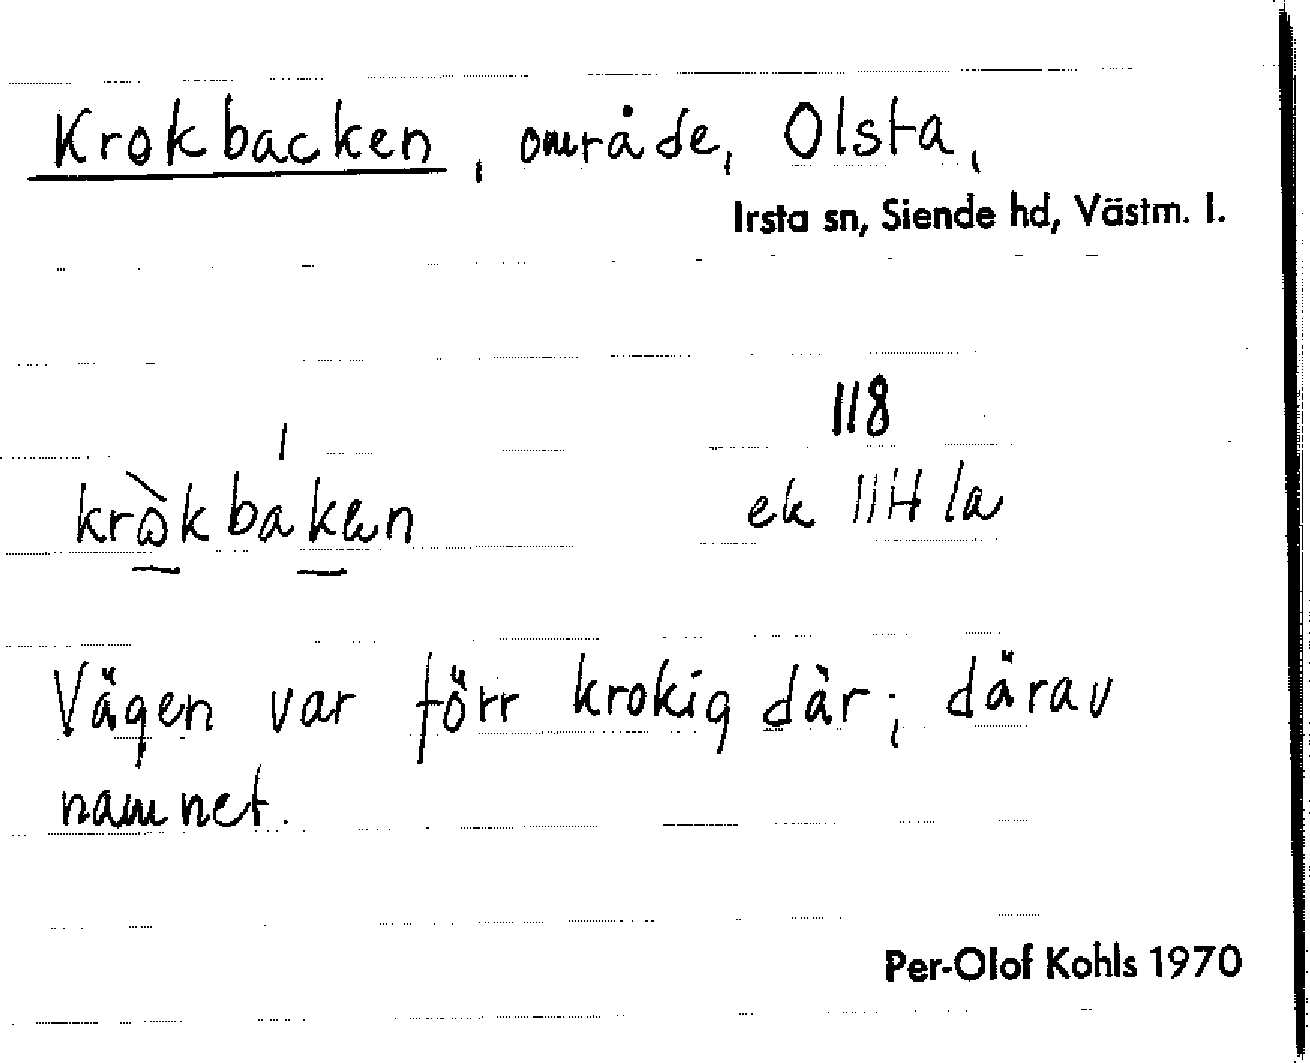 Krokbacken, område, Olsta,
Irsta sn, Siende hd, Västm. l.
118
kròkbaken ek 11H la
Vägen var förr krokig där; därav
namnet.
Per-Olof Kohls 1970